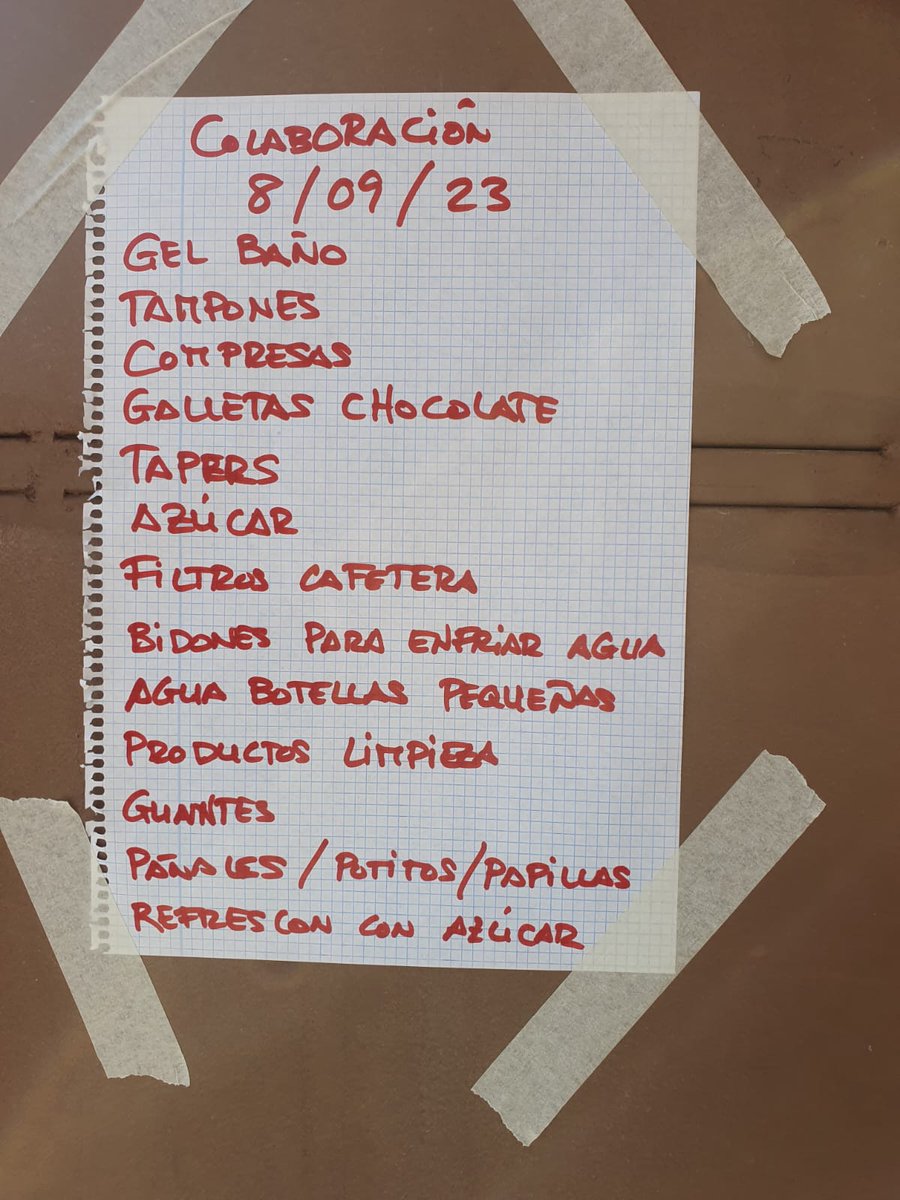 COLABORACIÓN
8/09/23
GEL BAÑO
TAMPONES
COMPRESAS
GALLETAS CHOCOLATE
TAPERS
AZÚCAR
FILTROS CAFETERA
BIDONES PARA ENFRIAR AGUA
AGUA BOTELLAS PEQUEÑAS
PRODUCTOS LIMPIEZA
GUANTES
PAÑALES / POTITOS / PAPILLAS
REFRESCON CON AZÚCAR